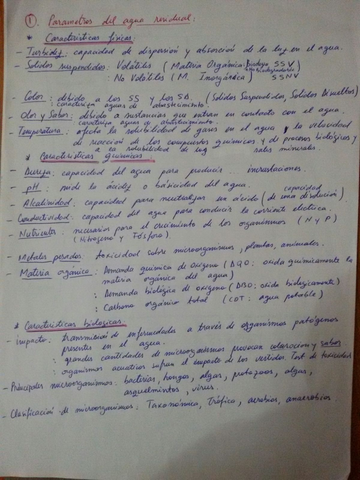 ① Parametros del agua residual:
* Características físicas:
- Turbidez: capacidad de dispersión y absorción de la luz en el agua.
- Solidos suspendidos: Volátiles (Materia Orgánica SSV
No Volátiles (M. Inorgánica) SSNV
- Color: debido a los SS y los SD. (Solidos Suspendidos, Solidos Disueltos)
- Olor y Sabor: debido a sustancias que entran en contacto con el agua.
- Temperatura: afecta la solubilidad de gases en el agua y la velocidad
de reacción de los compuestos químicos y de procesos biológicos y
a la solubilidad de sales minerales
* Características químicas:
- Dureza: capacidad del agua para producir incrustaciones.
- pH: mide la acidez o basicidad del agua.
- Alcalinidad: capacidad para neutralizar un ácido (capacidad de una disolución)
- Conductividad: capacidad del agua para conducir la corriente electrica.
- Nutrientes: necesarios para el crecimiento de los organismos (N y P)
(Nitrogeno y Fósforo)
- Metales pesados: toxicidad sobre microorganismos, plantas, animales.
- Materia orgánica: Demanda química de oxígeno (DQO: oxida químicamente la
materia orgánica del agua)
: Demanda biológica de oxígeno (DBO: oxida biologicamente)
: Carbono orgánico total (COT: agua potable)
* Características biologicas:
- Impacto: transmisión de enfermedades a través de organismos patógenos
presentes en el agua.
: grandes cantidades de microorganismos provocan coloracion y sabor
: organismos acuáticos sufren el impacto de los vertidos Test de toxicidad
- Principales microorganismos: bacterias, hongos, algas, protozoos, algas,
virus
- Clasificación de microorganismos: Taxonómica, Trófica, aerobios, anaerobios